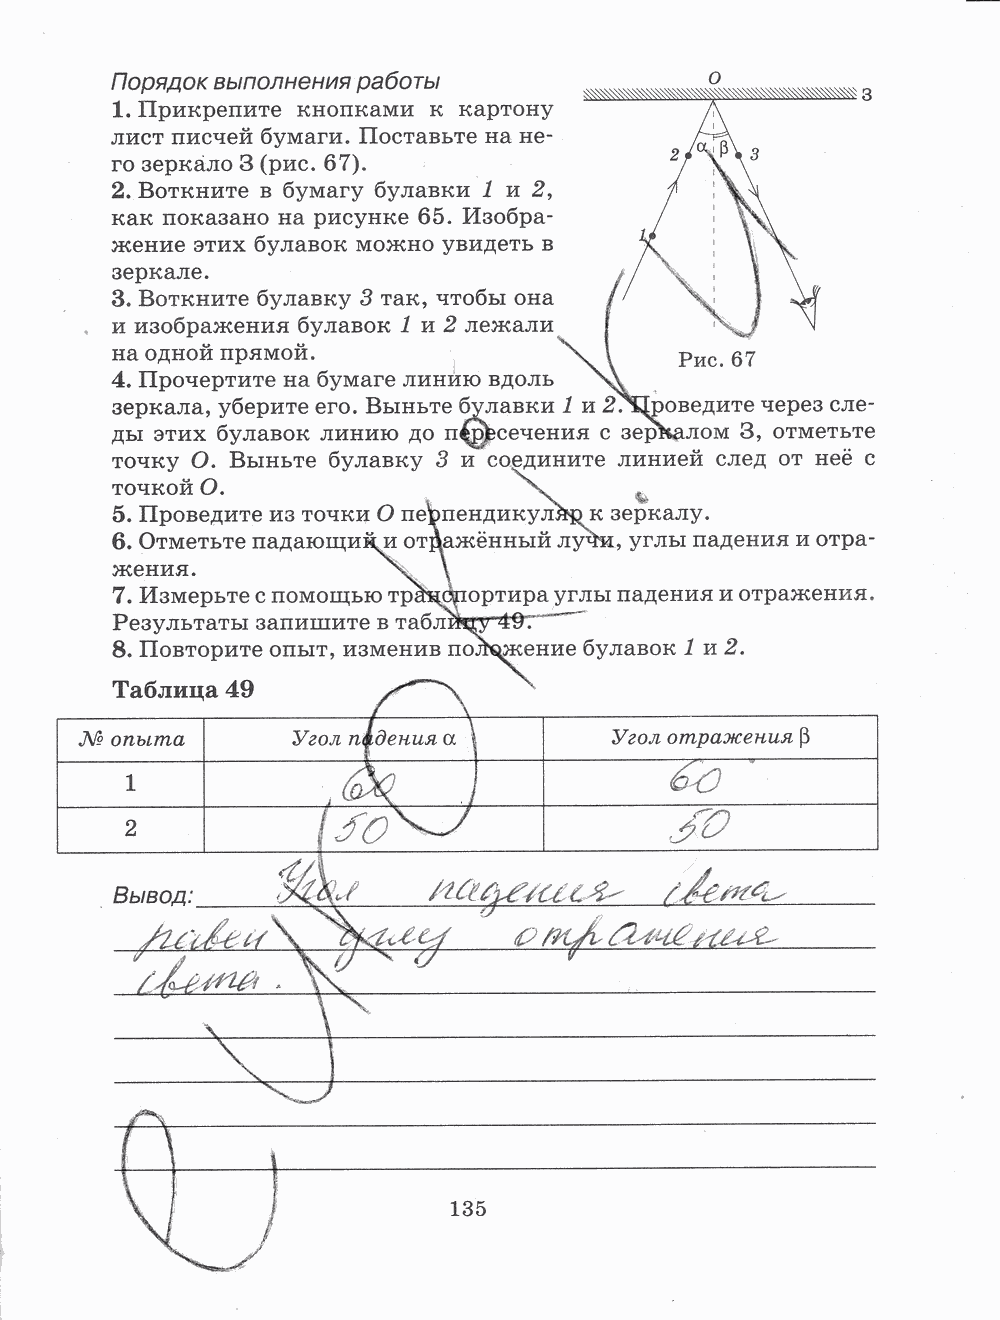 Порядок выполнения работы
1. Прикрепите кнопками к картону
лист писчей бумаги. Поставьте на не-
го зеркало З (рис. 67).
2. Воткните в бумагу булавки 1 и 2,
как показано на рисунке 65. Изобра-
жение этих булавок можно увидеть в
зеркале.
3. Воткните булавку 3 так, чтобы она
и изображения булавок 1 и 2 лежали
на одной прямой.
O
З
2
α
β
3
1
Рис. 67
4. Прочертите на бумаге линию вдоль
зеркала, уберите его. Выньте булавки 1 и 2. Проведите через сле-
ды этих булавок линию до пересечения с зеркалом З, отметьте
точку O. Выньте булавку 3 и соедините линией след от неё с
точкой O.
5. Проведите из точки O перпендикуляр к зеркалу.
6. Отметьте падающий и отражённый лучи, углы падения и отра-
жения.
7. Измерьте с помощью транспортира углы падения и отражения.
Результаты запишите в таблицу 49.
8. Повторите опыт, изменив положение булавок 1 и 2.
Таблица 49
№ опыта Угол падения α Угол отражения β
1 60 60
2 50 50
Вывод: Угол падения света
равен углу отражения
света.
135